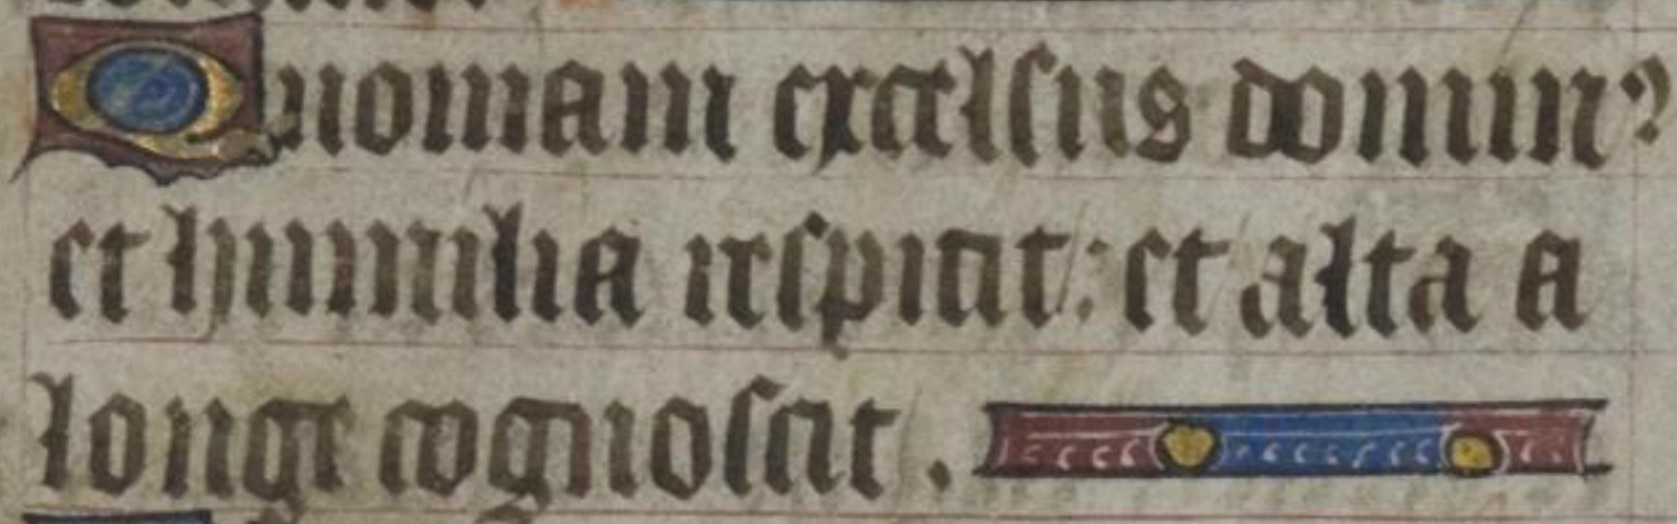 Quoniam excelsus domin⁹
et humilia respicit: et alta a
longe cognoscit.